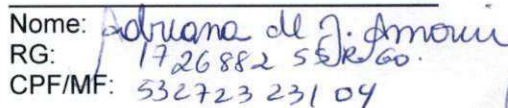 Nome: Adriana de J. Amorim
RG: 1726882 SSP GO.
CPF/MF: 532723 231 04